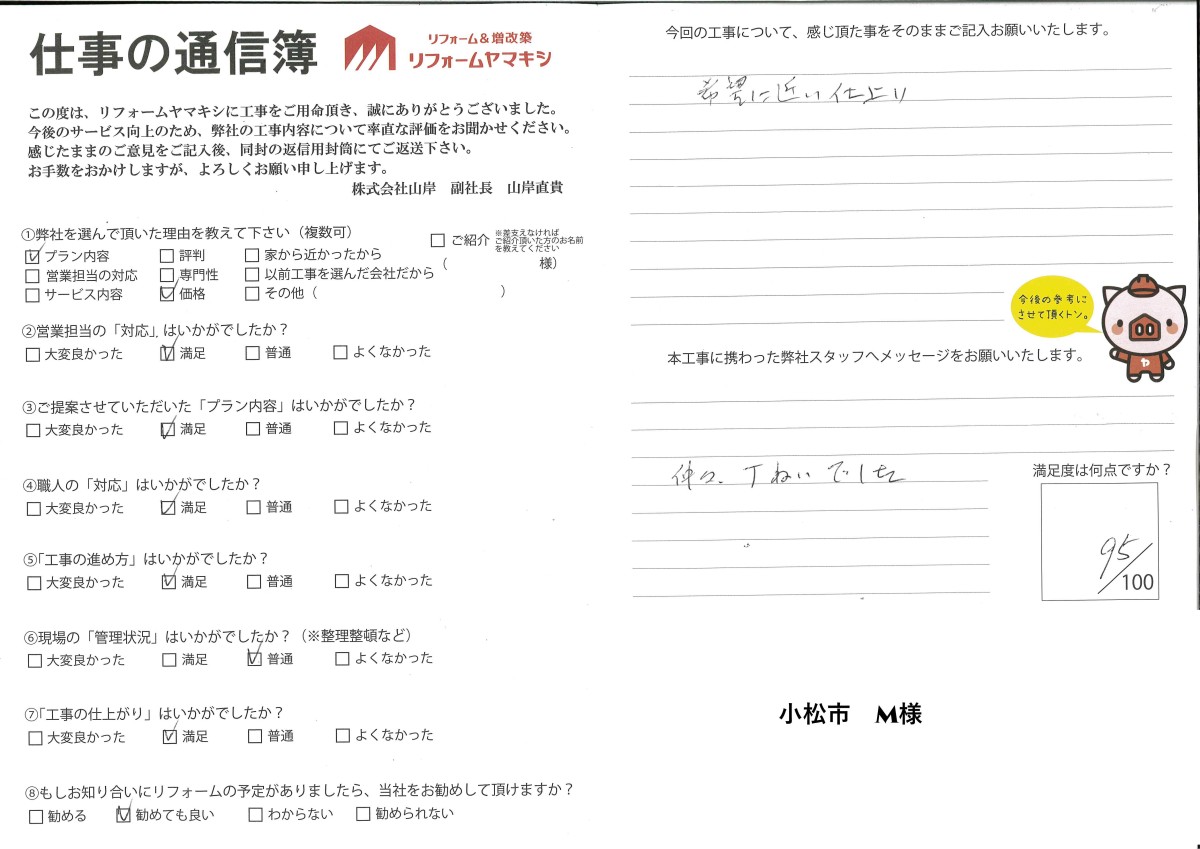 仕事の通信簿
リフォーム&増改築
リフォームヤマキシ
この度は、リフォームヤマキシに工事をご用命頂き、誠にありがとうございました。
今後のサービス向上のため、弊社の工事内容について率直な評価をお聞かせください。
感じたままのご意見をご記入後、同封の返信用封筒にてご返送下さい。
お手数をおかけしますが、よろしくお願い申し上げます。
株式会社山岸　副社長　山岸直貴
①弊社を選んで頂いた理由を教えて下さい（複数可）
☑プラン内容 □評判 □家から近かったから □ご紹介 ※差支えなければ
ご紹介頂いた方のお名前
を教えてください
（　　　　　　様）
□営業担当の対応 □専門性 □以前工事を選んだ会社だから
□サービス内容 ☑価格 □その他（　　　　　　　　　　）
②営業担当の「対応」はいかがでしたか？
□大変良かった ☑満足 □普通 □よくなかった
③ご提案させていただいた「プラン内容」はいかがでしたか？
□大変良かった ☑満足 □普通 □よくなかった
④職人の「対応」はいかがでしたか？
□大変良かった ☑満足 □普通 □よくなかった
⑤「工事の進め方」はいかがでしたか？
□大変良かった ☑満足 □普通 □よくなかった
⑥現場の「管理状況」はいかがでしたか？（※整理整頓など）
□大変良かった □満足 ☑普通 □よくなかった
⑦「工事の仕上がり」はいかがでしたか？
□大変良かった ☑満足 □普通 □よくなかった
⑧もしお知り合いにリフォームの予定がありましたら、当社をお勧めして頂けますか？
□勧める ☑勧めても良い □わからない □勧められない
今回の工事について、感じ頂た事をそのままご記入お願いいたします。
希望に近い仕上り
今後の参考に
させて頂くトン。
ヤ
本工事に携わった弊社スタッフへメッセージをお願いいたします。
仲々、丁ねいでした
満足度は何点ですか？
95/100
小松市　M様